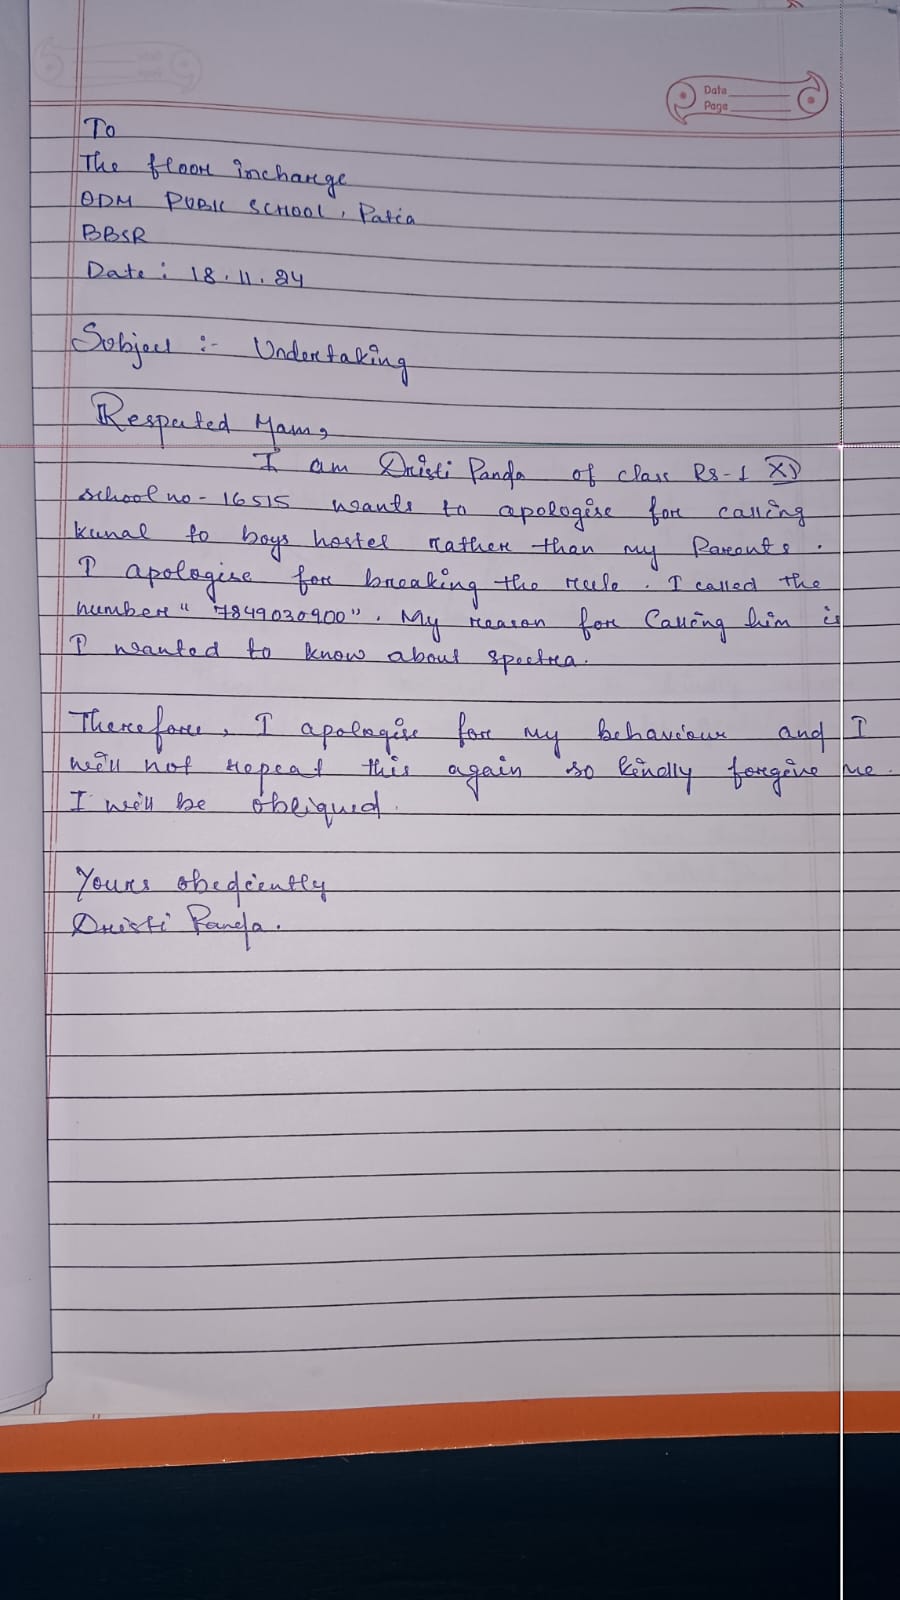 Date
Page
To
The floor incharge
ODM PUBLIC SCHOOL, Patia
BBSR
Date : 18.11.24
Subject :- Undertaking
Respected Mam,
I am Dristi Panda of class RS-1 XI
school no - 16515 wants to apologise for calling
kunal to boys hostel rather than my Parents.
I apologise for breaking the rule. I called the
number "7849030900". My reason for Calling him is
I wanted to know about spectra.
Therefore, I apologise for my behaviour and I
will not repeat this again so kindly forgive me.
I will be obliqued.
Yours obediently
Dristi Panda.